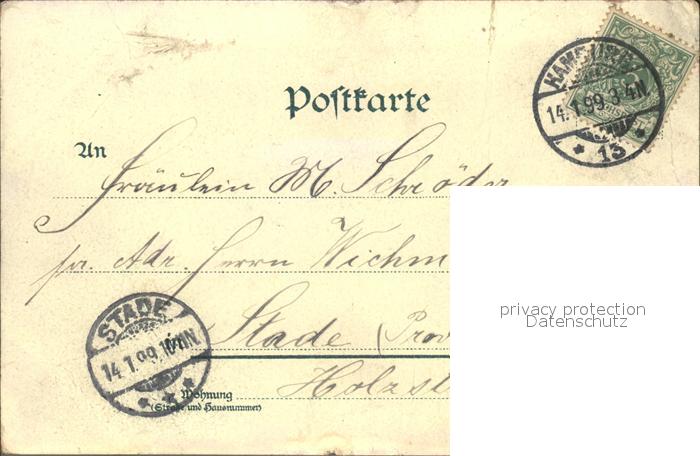 Postkarte
HAMBURG
14.1.99.3-4N.
* 13 *
An
Fräulein M. Schröder
pr. Adr. Herrn Wichm
privacy protection
Datenschutz
Stade (Prov
STADE
14.1.99.
Holzst
Wohnung
(Straße und Hausnummer)